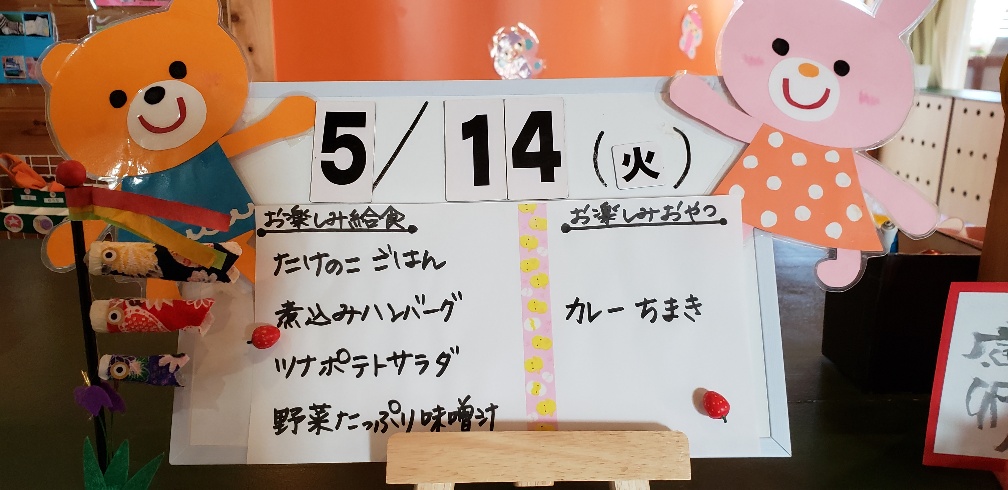 5/14(火)
お楽しみ給食
たけのこごはん
煮込みハンバーグ
ツナポテトサラダ
野菜たっぷり味噌汁
お楽しみおやつ
カレーちまき